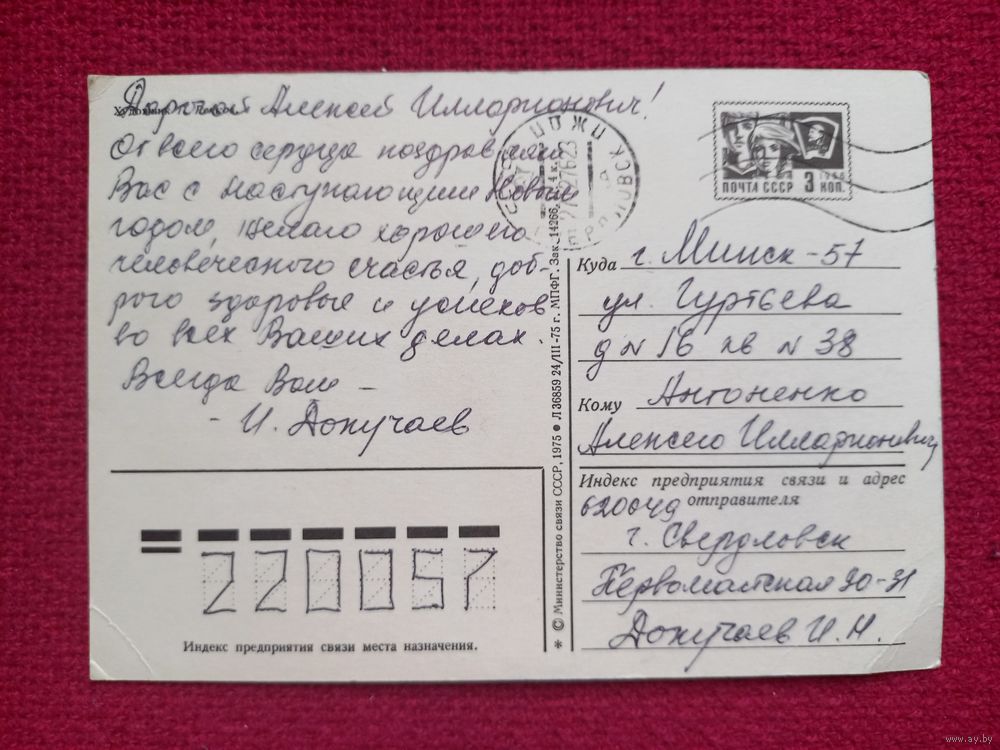 Дорогой Алексей Илларионович!
Художник
От всего сердца поздравляю
Вас с наступающим Новым
годом, желаю хорошего
человеческого счастья, доб-
рого здоровья и успехов
во всех Ваших делах.
Всегда Ваш -
- И. Докучаев
ПОЧТА СССР 3 КОП.
Куда г. Минск-57
ул. Гуртьева
д N 16 кв N 38
Кому Антоненко
Алексею Илларионовичу
Индекс предприятия связи и адрес
620049 отправителя
г. Свердловск
Первомайская 90-31
Докучаев И. Н.
220057
Индекс предприятия связи места назначения.
* © Министерство связи СССР, 1975 ● Л 36859 24/III-75 г. МПФГ. Зак. 14266.
www.ay.by